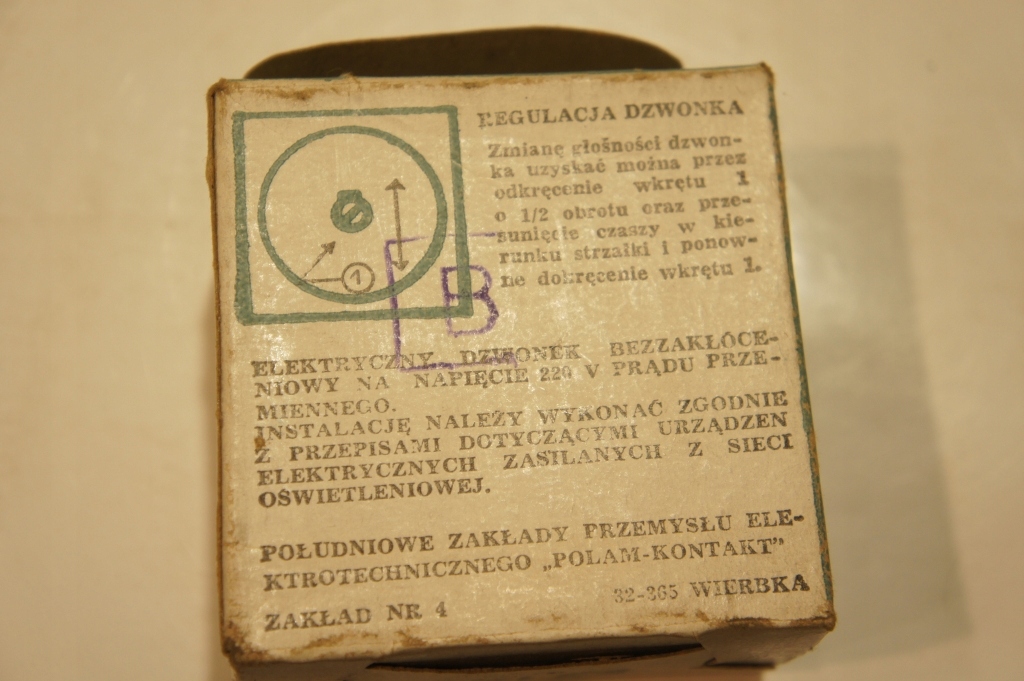 REGULACJA DZWONKA
Zmianę głośności dzwon-
ka uzyskać można przez
odkręcenie wkrętu 1
o 1/2 obrotu oraz prze-
sunięcie czaszy w kie-
runku strzałki i ponow-
ne dokręcenie wkrętu 1.
1
B
ELEKTRYCZNY DZWONEK BEZZAKŁÓCE-
NIOWY NA NAPIĘCIE 220 V PRĄDU PRZE-
MIENNEGO.
INSTALACJĘ NALEŻY WYKONAĆ ZGODNIE
Z PRZEPISAMI DOTYCZĄCYMI URZĄDZEN
ELEKTRYCZNYCH ZASILANYCH Z SIECI
OŚWIETLENIOWEJ.
POŁUDNIOWE ZAKŁADY PRZEMYSŁU ELE-
KTROTECHNICZNEGO „POLAM-KONTAKT”
ZAKŁAD NR 4 32-365 WIERBKA